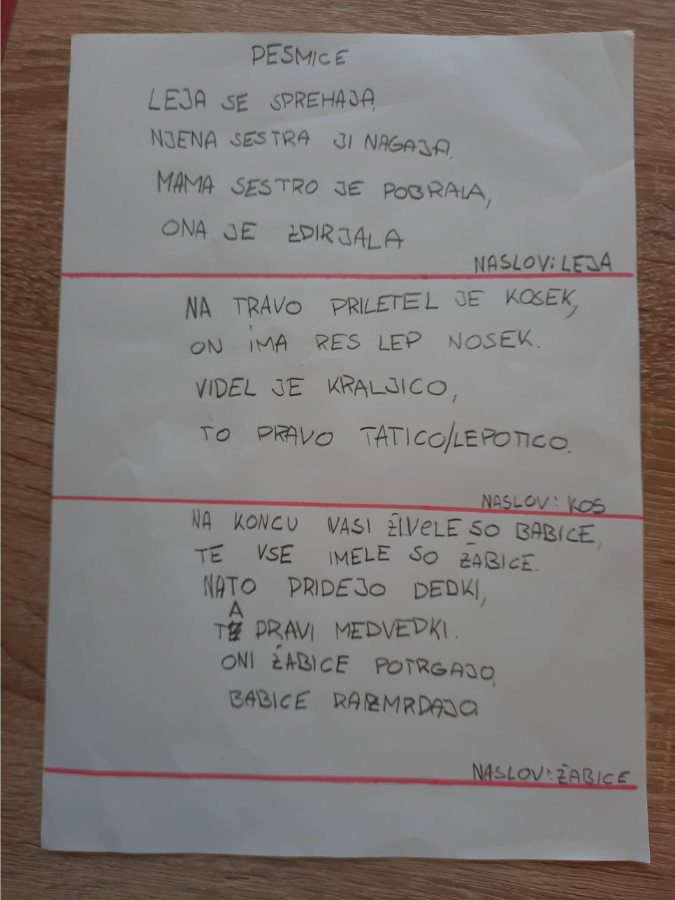 PESMICE
LEJA SE SPREHAJA,
NJENA SESTRA JI NAGAJA.
MAMA SESTRO JE POBRALA,
ONA JE ZDIRJALA
NASLOV: LEJA
NA TRAVO PRILETEL JE KOSEK,
ON IMA RES LEP NOSEK.
VIDEL JE KRALJICO,
TO PRAVO TATICO/LEPOTICO.
NASLOV: KOS
NA KONCU VASI ŽIVELE SO BABICE,
TE VSE IMELE SO ŽABICE.
NATO PRIDEJO DEDKI,
TA PRAVI MEDVEDKI.
ONI ŽABICE POTRGAJO,
BABICE RAZMRDAJO
NASLOV: ŽABICE